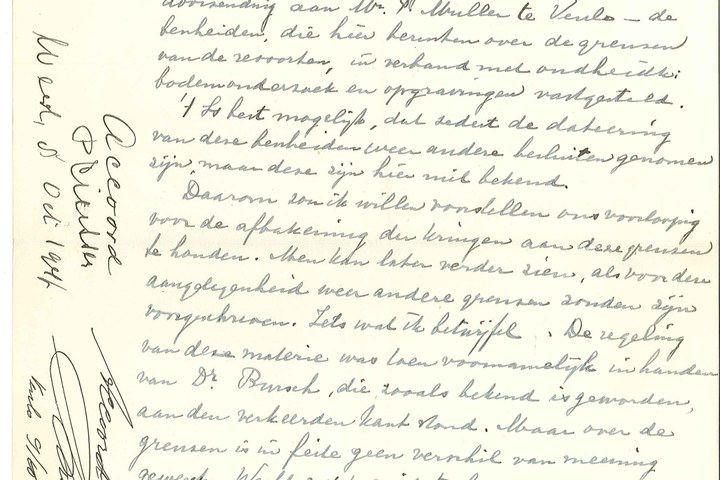 doorzending aan Mr. P. Muller te Venlo – de
benheiden, die hier berusten over de grenzen
van de ressorten, in verband met oudheidk:
bodemonderzoek en opgravingen vastgesteld.
't Is best mogelijk, dat sedert de dateering
van deze benheiden weer andere besluiten genomen
zijn, maar deze zijn hier niet bekend.
Daarom zou ik willen voorstellen ons voorloopig
voor de afbakening der kringen aan deze grenzen
te houden. Men kan later verder zien, als voor deze
aangelegenheid weer andere grenzen zouden zijn
voorgeschreven. Iets wat ik betwijfel. De regeling
van deze materie was toen voornamelijk in handen
van Dr. Bursch, die zooals bekend is geworden,
aan den verkeerden kant stond. Maar over de
grenzen is in feite geen verschil van meening
Accoord
Weert, 5 Oct 194
Accoord
Venlo 9/10